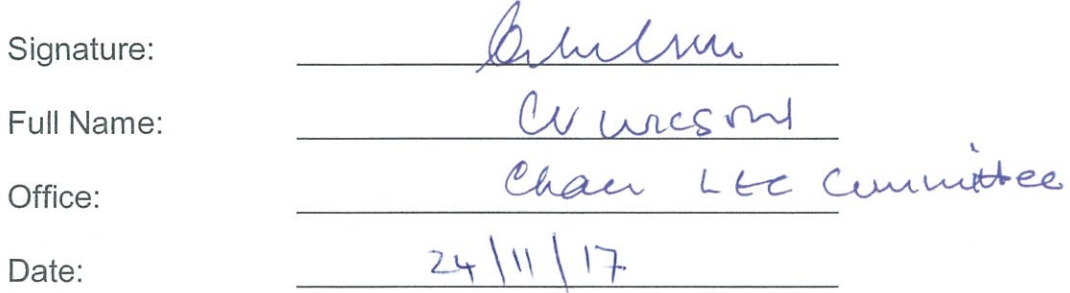 Signature:
Full Name: CV WILSON
Office: Chair LEC Committee
Date: 24/11/17